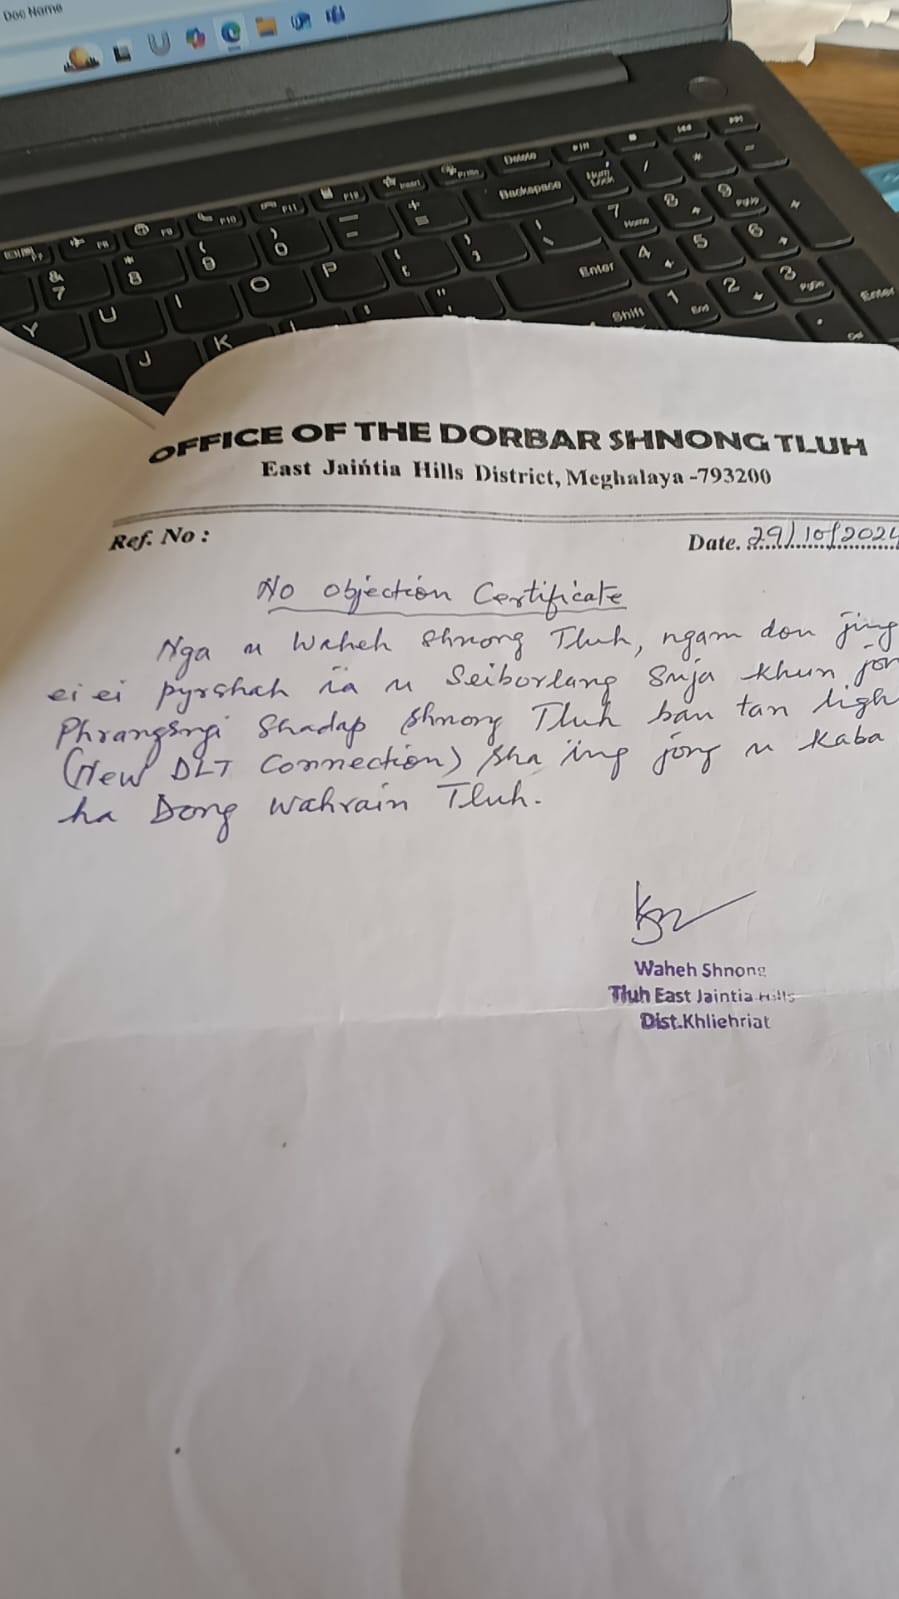 Doc Name
Delete
Backspace
Num Lock
7 Home
8
9 PgUp
4
5
6
1 End
2
3 PgDn
Enter
Shift
Enter
& 7
* 8
( 9
) 0
Y U I O P
J K L
OFFICE OF THE DORBAR SHNONG TLUH
East Jaińtia Hills District, Meghalaya -793200
Ref. No :
Date. 29/10/2024
No Objection Certificate
Nga u Waheh Shnong Tluh, ngam don jing
ei ei pyrshah ïa u Seiborlang Suja khun jon
Phrangsngi Shadap Shnong Tluh ban tan ligh
(New DLT Connection) sha ïing jong u kaba
ha Dong Wahrain Tluh.
Waheh Shnong
Tluh East Jaintia Hills
Dist.Khliehriat